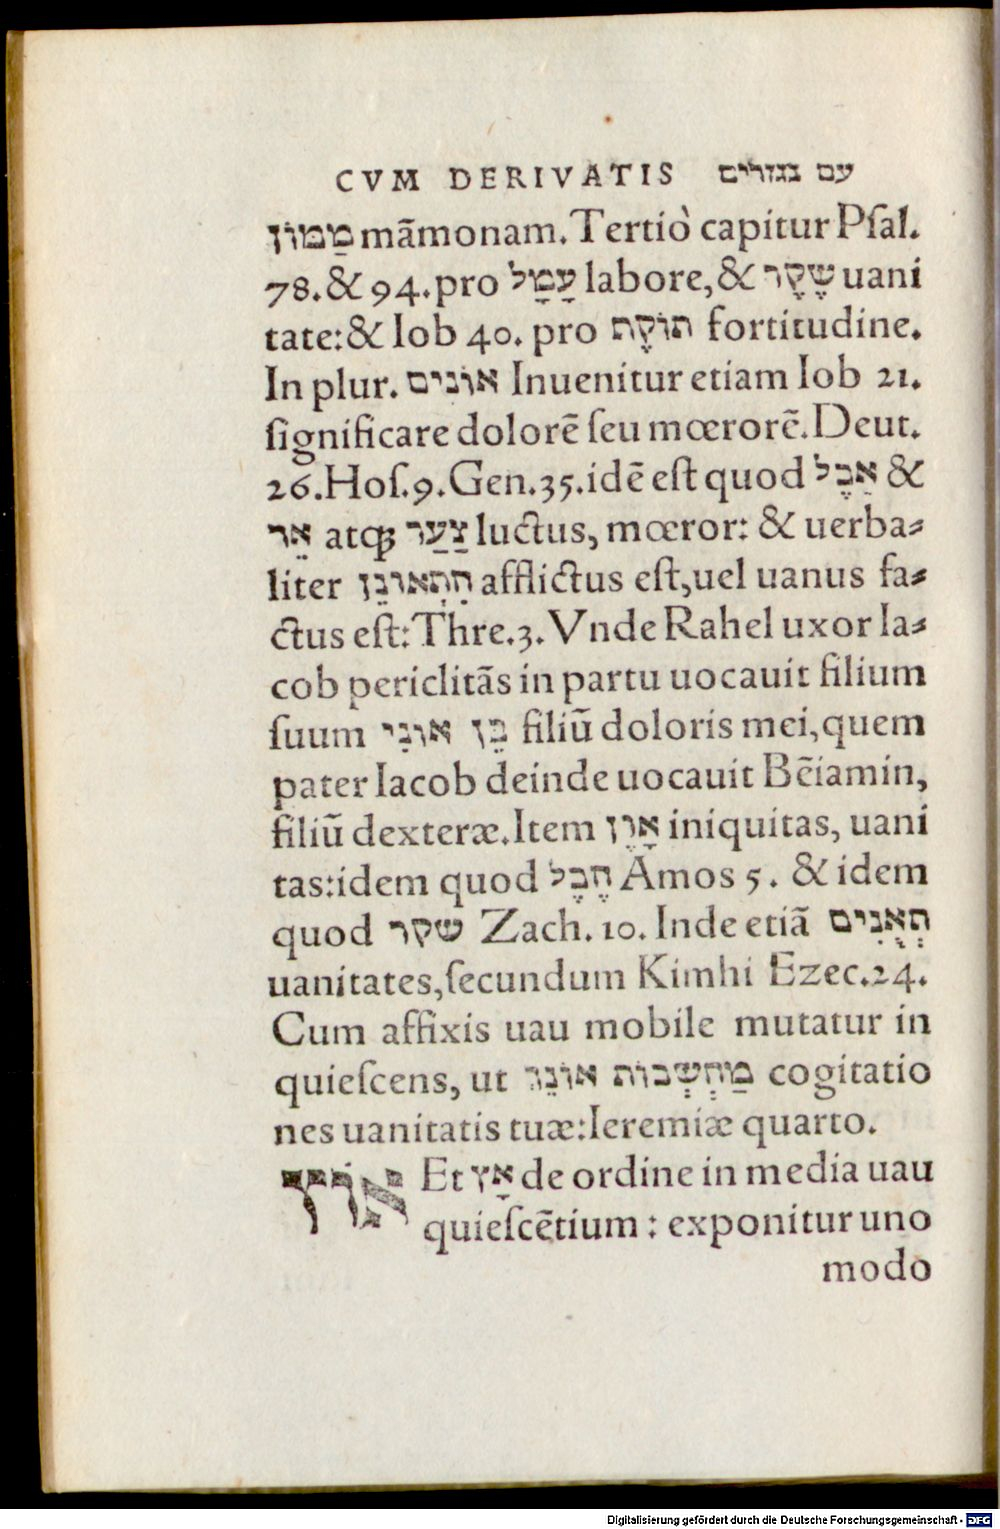 CVM DERIVATIS עם נגזרים
מַמּוֹן mãmonam. Tertiò capitur Pſal.
78. & 94. pro עָמָל labore, & שֶקֶר uani
tate: & Iob 40. pro תוֹקֶת fortitudine.
In plur. אוֹנִים Inuenitur etiam Iob 21.
ſignificare dolorẽ ſeu mœrorẽ. Deut.
26. Hoſ. 9. Gen. 35. idẽ eſt quod אֵבֶל &
אֵר atq; צַעַר luctus, mœror: & uerba⸗
liter הִתְאוֹנֵן afflictus eſt, uel uanus fa⸗
ctus eſt: Thre. 3. Vnde Rahel uxor Ia⸗
cob periclitãs in partu uocauit filium
ſuum בֵּן אוֹנִי filiũ doloris mei, quem
pater Iacob deinde uocauit Bẽiamin,
filiũ dexteræ. Item אָוֶן iniquitas, uani
tas: idem quod הֶבֶל Amos 5. & idem
quod שקר Zach. 10. Inde etiã תְאֻנִים
uanitates, ſecundum Kimhi Ezec. 24.
Cum affixis uau mobile mutatur in
quieſcens, ut מַחְשְׁבוֹת אוֹנֵךְ cogitatio
nes uanitatis tuæ: Ieremiæ quarto.
אוּץ Et אָץ de ordine in media uau
quieſcẽtium : exponitur uno
modo
Digitalisierung gefördert durch die Deutsche Forschungsgemeinschaft - DFG